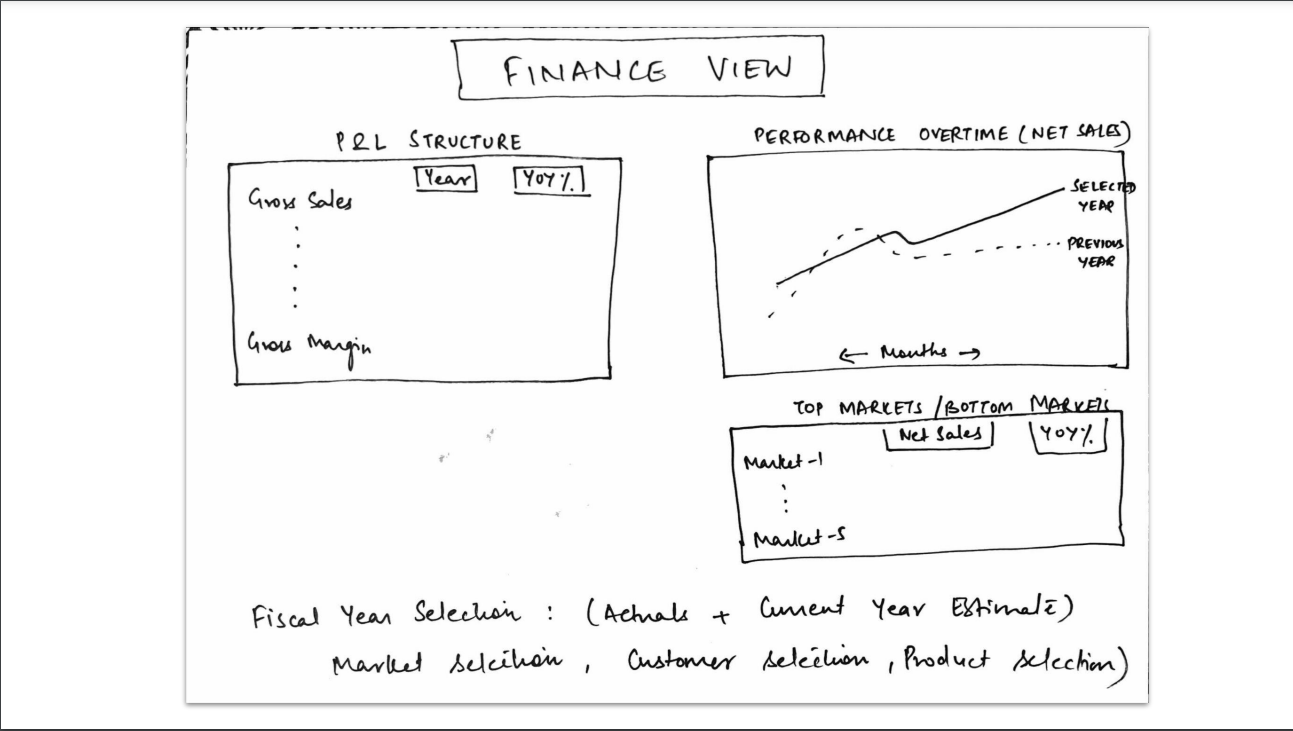 FINANCE VIEW
P&L STRUCTURE
Year YOY%
Gross Sales
Gross Margin
PERFORMANCE OVERTIME (NET SALES)
SELECTED
YEAR
PREVIOUS
YEAR
← Months →
TOP MARKETS / BOTTOM MARKETS
Net Sales YOY%
Market-1
Market-5
Fiscal Year Selection : (Actuals + Current Year Estimate)
Market selection, Customer selection, Product selection)